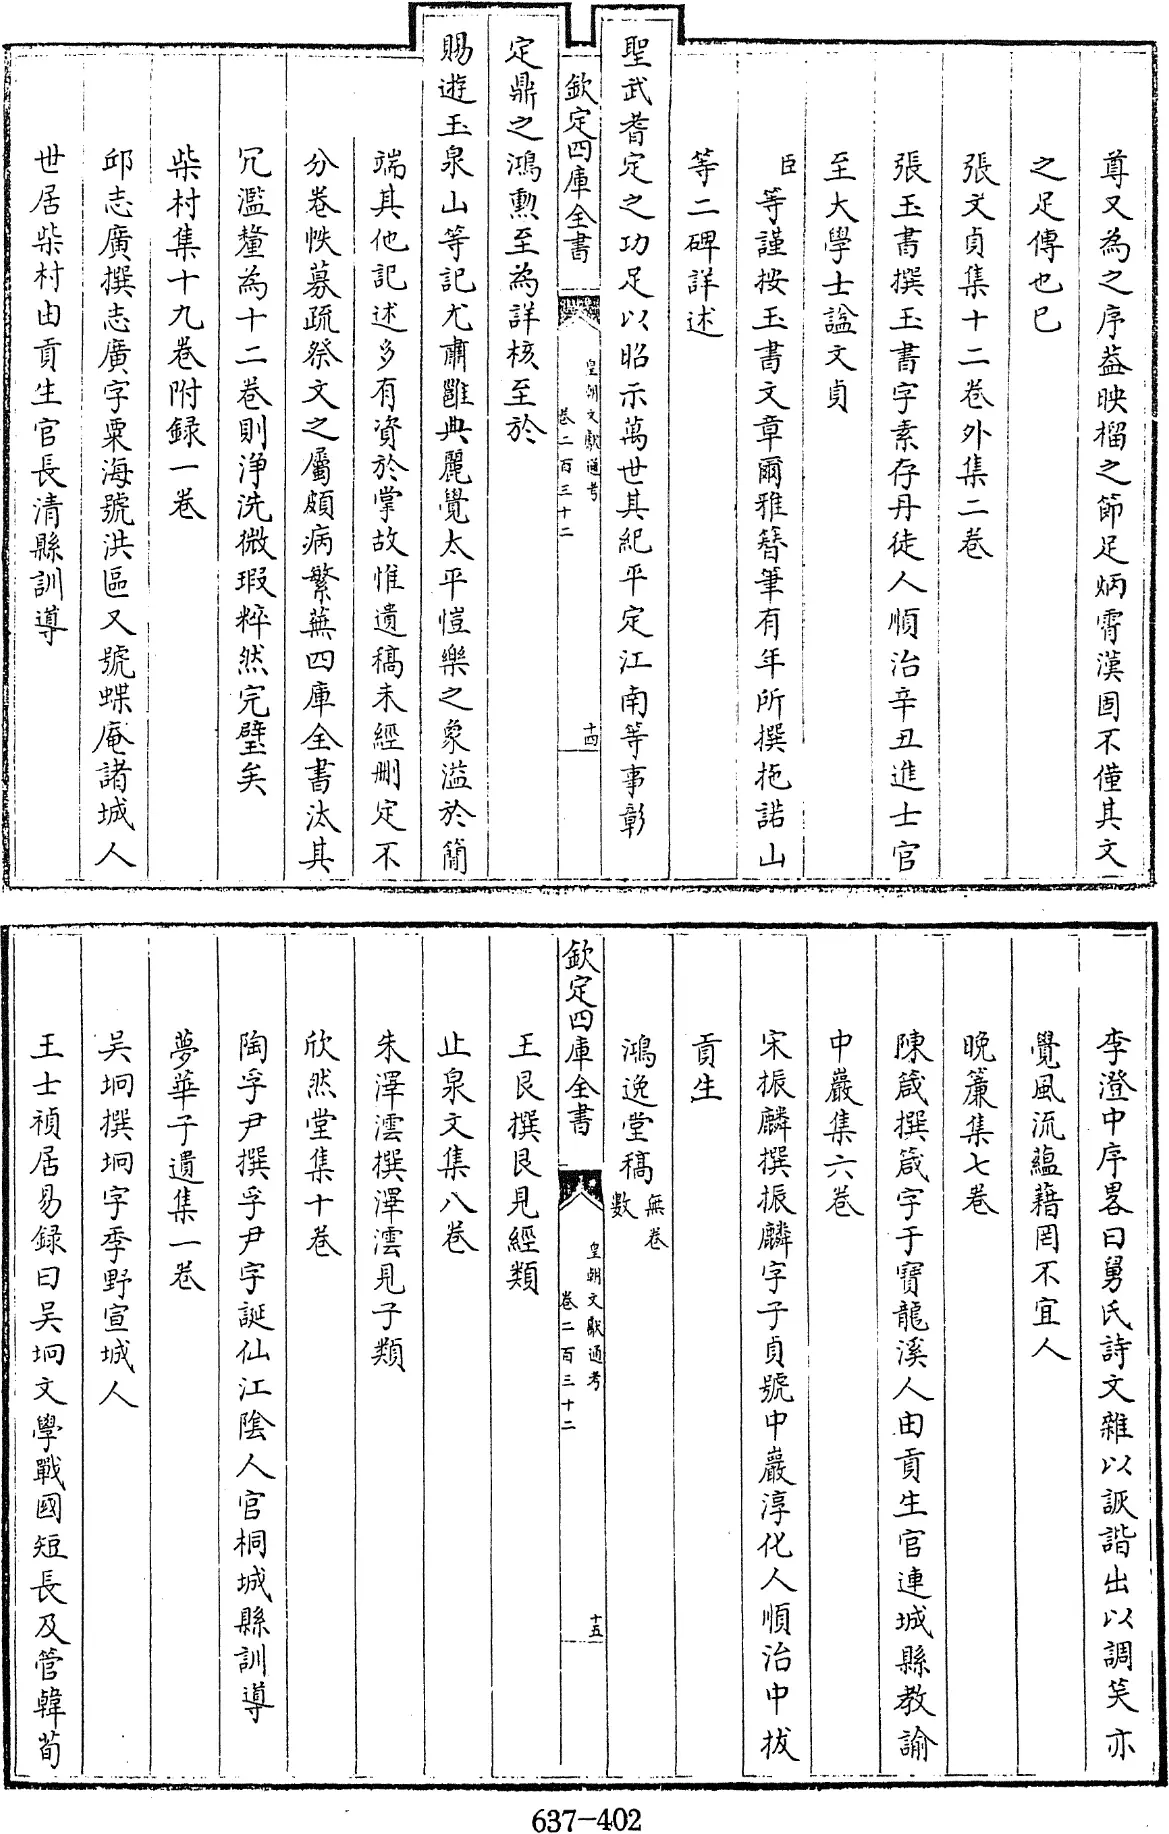 尊又為之序葢映榴之節足炳霄漢固不僅其文
之足傳也已
張文貞集十二卷外集二卷
張玉書撰玉書字素存丹徒人順治辛丑進士官
至大學士諡文貞
臣等謹按玉書文章爾雅簪筆有年所撰拖諾山
等二碑詳述
聖武耆定之功足以昭示萬世其紀平定江南等事彰
欽定四庫全書
皇朝文獻通考
卷二百三十二
十四
定鼎之鴻勲至為詳核至於
賜遊玉泉山等記尤肅雝典麗覺太平愷樂之象溢於簡
端其他記述多有資於掌故惟遺稿未經刪定不
分卷帙募疏祭文之屬頗病繁蕪四庫全書汰其
冗濫釐為十二卷則浄洗微瑕粹然完璧矣
柴村集十九卷附録一卷
邱志廣撰志廣字粟海號洪區又號蝶庵諸城人
世居柴村由貢生官長清縣訓導
李澄中序畧曰舅氏詩文雜以詼諧出以調笑亦
覺風流蘊藉罔不宜人
晩簾集七卷
陳箴撰箴字于寶龍溪人由貢生官連城縣教諭
中巖集六卷
宋振麟撰振麟字子貞號中巖淳化人順治中拔
貢生
鴻逸堂稿無卷數
欽定四庫全書
皇朝文獻通考
卷二百三十二
十五
王艮撰艮見經類
止泉文集八卷
朱澤澐撰澤澐見子類
欣然堂集十卷
陶孚尹撰孚尹字誕仙江陰人官桐城縣訓導
夢華子遺集一卷
吴坰撰坰字季野宣城人
王士禎居易録曰吴坰文學戰國短長及管韓荀
637-402